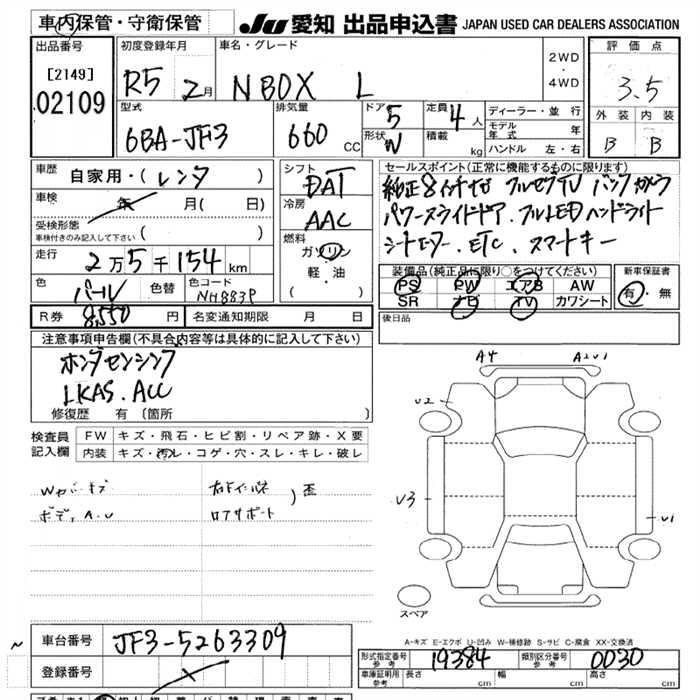 車内保管・守衛保管
JU 愛知 出品申込書 JAPAN USED CAR DEALERS ASSOCIATION
出品番号
[2149]
02109
初度登録年月
R5 2月
車名・グレード
N BOX L
2WD
・
4WD
評価点
3.5
外装 内装
B B
型式
6BA-JF3
排気量
660 CC
ドア 5
形状 W
定員 4 人
積載 kg
ディーラー・並行
モデル年式 年
ハンドル 左・右
車歴
自家用・(レンタ)
車検
年 月(日)
受検形態
車検付きのみ記入して下さい ( )
走行
2万5千154km
色
パール
色替
色コード
NH883P
シフト
DAT
冷房
AAC
燃料
ガソリン
軽・油
( )
セールスポイント(正常に機能するものに限ります)
純正8インチナビ フルセグTV バックカメラ
パワースライドドア.フルLEDヘッドライト
シートヒーター.ETC.スマートキー
装備品(純正品に限り○をつけてください)
PS PW エアB AW
SR ナビ TV カワシート
新車保証書
有・無
R券 8,550 円
名変通知期限 月 日
後日品
注意事項申告欄(不具合内容等は具体的に記入して下さい)
ホンダセンシング
LKAS.ACC
修復歴 有(箇所 )
検査員
記入欄
FW キズ・飛石・ヒビ割・リペア跡・X要
内装 キズ・汚レ・コゲ・穴・スレ・キレ・破レ
ボディA.U
ロアサポート
歪
A4 A2U1
U2
U3
U1
スペア
A-キズ E-エクボ U-凹み W-補修跡 S-サビ C-腐食 XX-交換済
車台番号 JF3-5263309
登録番号
形式指定番号 参考 19384
類別区分番号 参考 0030
車庫証明用 参考 長さ cm 幅 cm 高さ cm